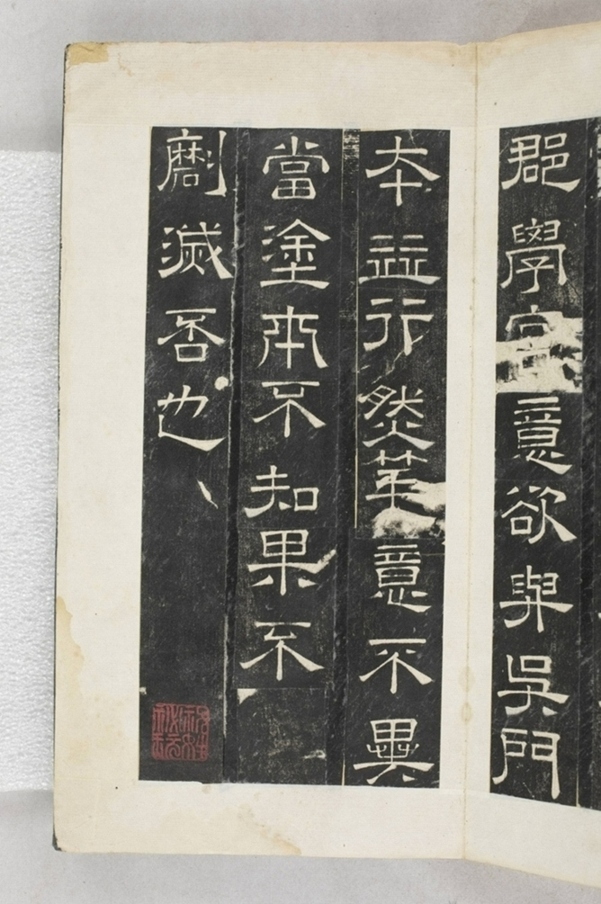 郡學意欲與吳門
本並行然筆意不異
當塗本不知果不
劘滅否也